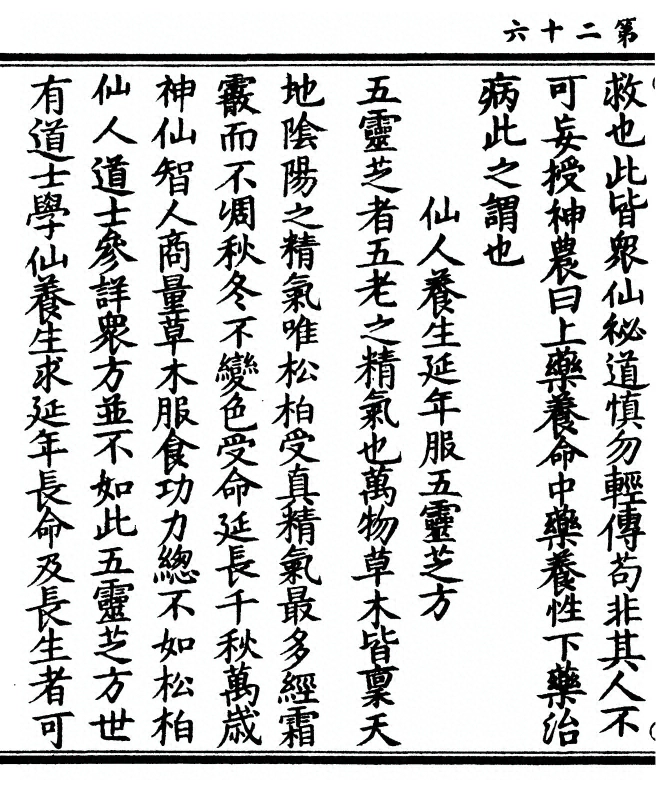 第二十六
救也此皆眾仙祕道慎勿輕傳苟非其人不
可妄授神農曰上藥養命中藥養性下藥治
病此之謂也
仙人養生延年服五靈芝方
五靈芝者五老之精氣也萬物草木皆稟天
地陰陽之精氣唯松柏受真精氣最多經霜
霰而不凋秋冬不變色受命延長千秋萬歲
神仙智人商量草木服食功力總不如松柏
仙人道士參詳眾方並不如此五靈芝方世
有道士學仙養生求延年長命及長生者可